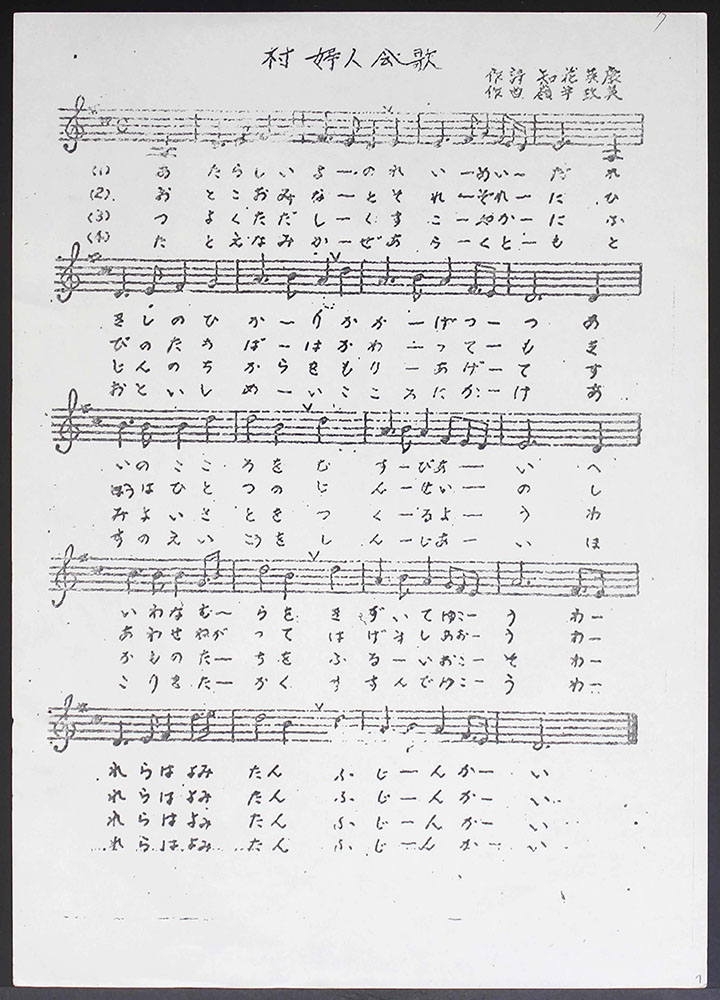 村婦人会歌
作詩 知花英康
作曲 嶺井政英
(1) あ たらしいよーのれ い ーめいー だ れ
(2) お とこおみなーとそ れ ーぞれー に ひ
(3) つ よくただしーくす こ ーやかー に ふ
(4) た とえなみかーぜあ ら ーくとー も と
きしのひ かーりかか ーばつー つ あ
びのため ばーはかわ ーってー も き
じんのち からをもり ーあげー て す
おといしめーいこころにかー け あ
いのここ ろをむ すーびあー い へ
ほうはひと つのじ んーせいー の し
みよいさ とをつ くーるよー う わ
すのえい こうをし んーじあー い ほ
いわなむー らを きずいてゆこー う わー
あわせねがって はげましあおー う わー
かものたー ちを ふるーいおこー そ わー
こりきたー かく すすんでゆこー う わー
れらはよみ たん ふじーんかー い
れらはよみ たん ふじーんかー い
れらはよみ たん ふじーんかー い
れらはよみ たん ふじーんかー い